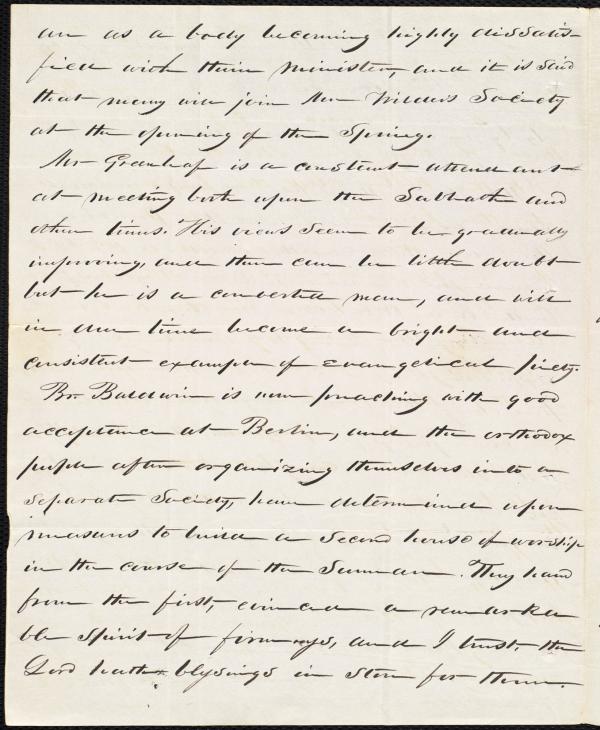 are as a body becoming highly dissatis-
fied with their minister, and it is said
that many will join Mr. Wilder's Society
at the opening of the Spring.
Mr Greenleaf is a constant attendant
at meeting both upon the Sabbath and
other times. His views seem to be gradually
improving, and there can be little doubt
but he is a converted man, and will
in due time become a bright and
consistent example of Evangelical piety.
Br. Baldwin is now preaching with good
acceptance at Berlin, and the orthodox
people after organizing themselves into a
separate Society, have determined upon
measures to build a second house of worship
in the course of the Summer. They have
from the first, evinced a remarka
ble spirit of firmness, and I trust, the
Lord hath blessings in store for them.